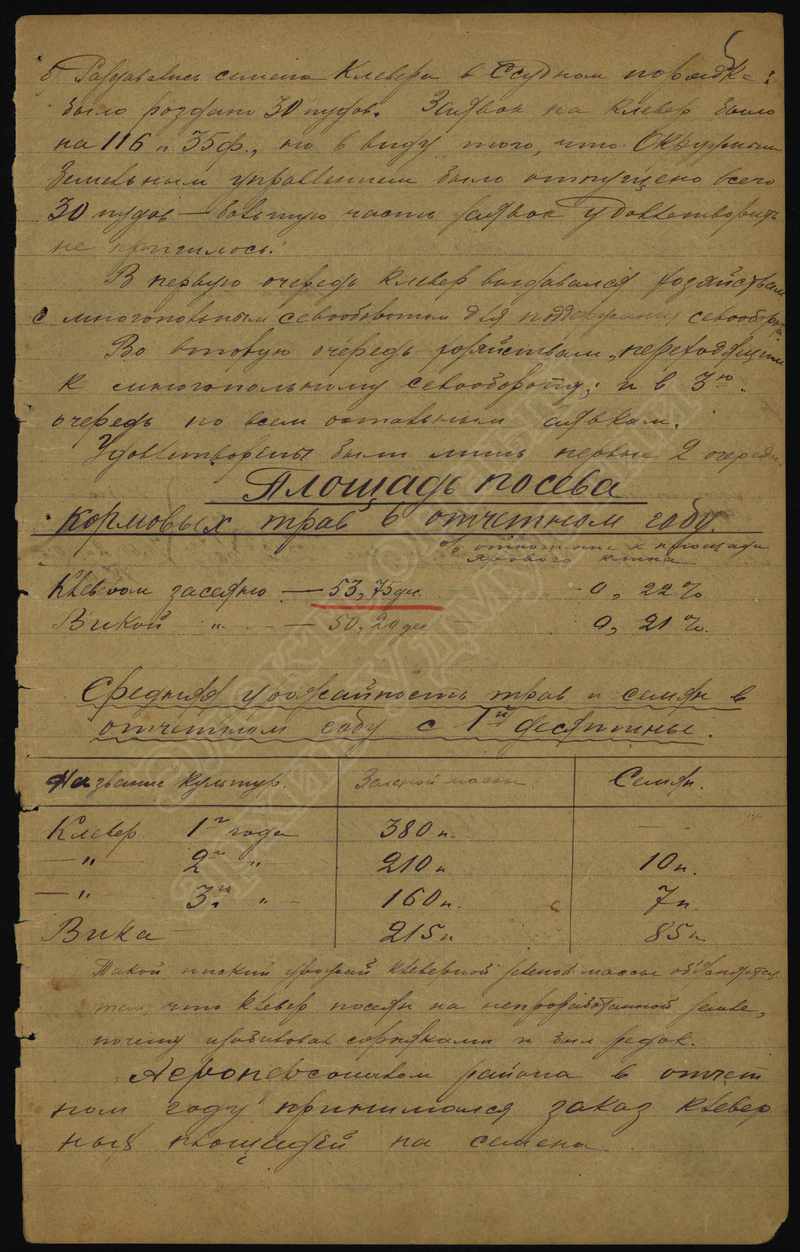 5
б) Раздавались семена клевера в ссудном порядке:
было роздано 30 пудов. Заявок на клевер было
на 116 п. 35 ф., но в виду того, что Окружным
Земельным управлением было отпущено всего
30 пудов — большую часть заявок удовлетворить
не пришлось.
В первую очередь клевер выдавался хозяйствам
с многопольным севооборотом для поддержания севооборота.
Во вторую очередь хозяйствам, переходящим
к многопольному севообороту; и в 3ю
очередь по всем остальным заявкам.
Удовлетворены были лишь первые 2 очереди.
Площадь посева
кормовых трав в отчетном году.
% отношение к площади
ярового клина
Клевером засеяно — 53,75 дес. - 0,22%
Викой " — 50,20 дес 0,21%.
Средняя урожайность трав и семян в
отчетном году с 1й десятины.
Название культур. Зеленой массы Семян.
Клевер 1го года 380 п. —
—"— 2го " 210 п 10 п.
—"— 3го " 160 п. 7 п
Вика 215 п 85 п
Такой низкий урожай клеверной зеленой массы объясняется
тем, что клевер посеян на непроработанной земле,
почему изобиловал сорняками и был редок.
Агроперсоналом района в отчет
ном году принимался заказ клевер
ных площадей на семена